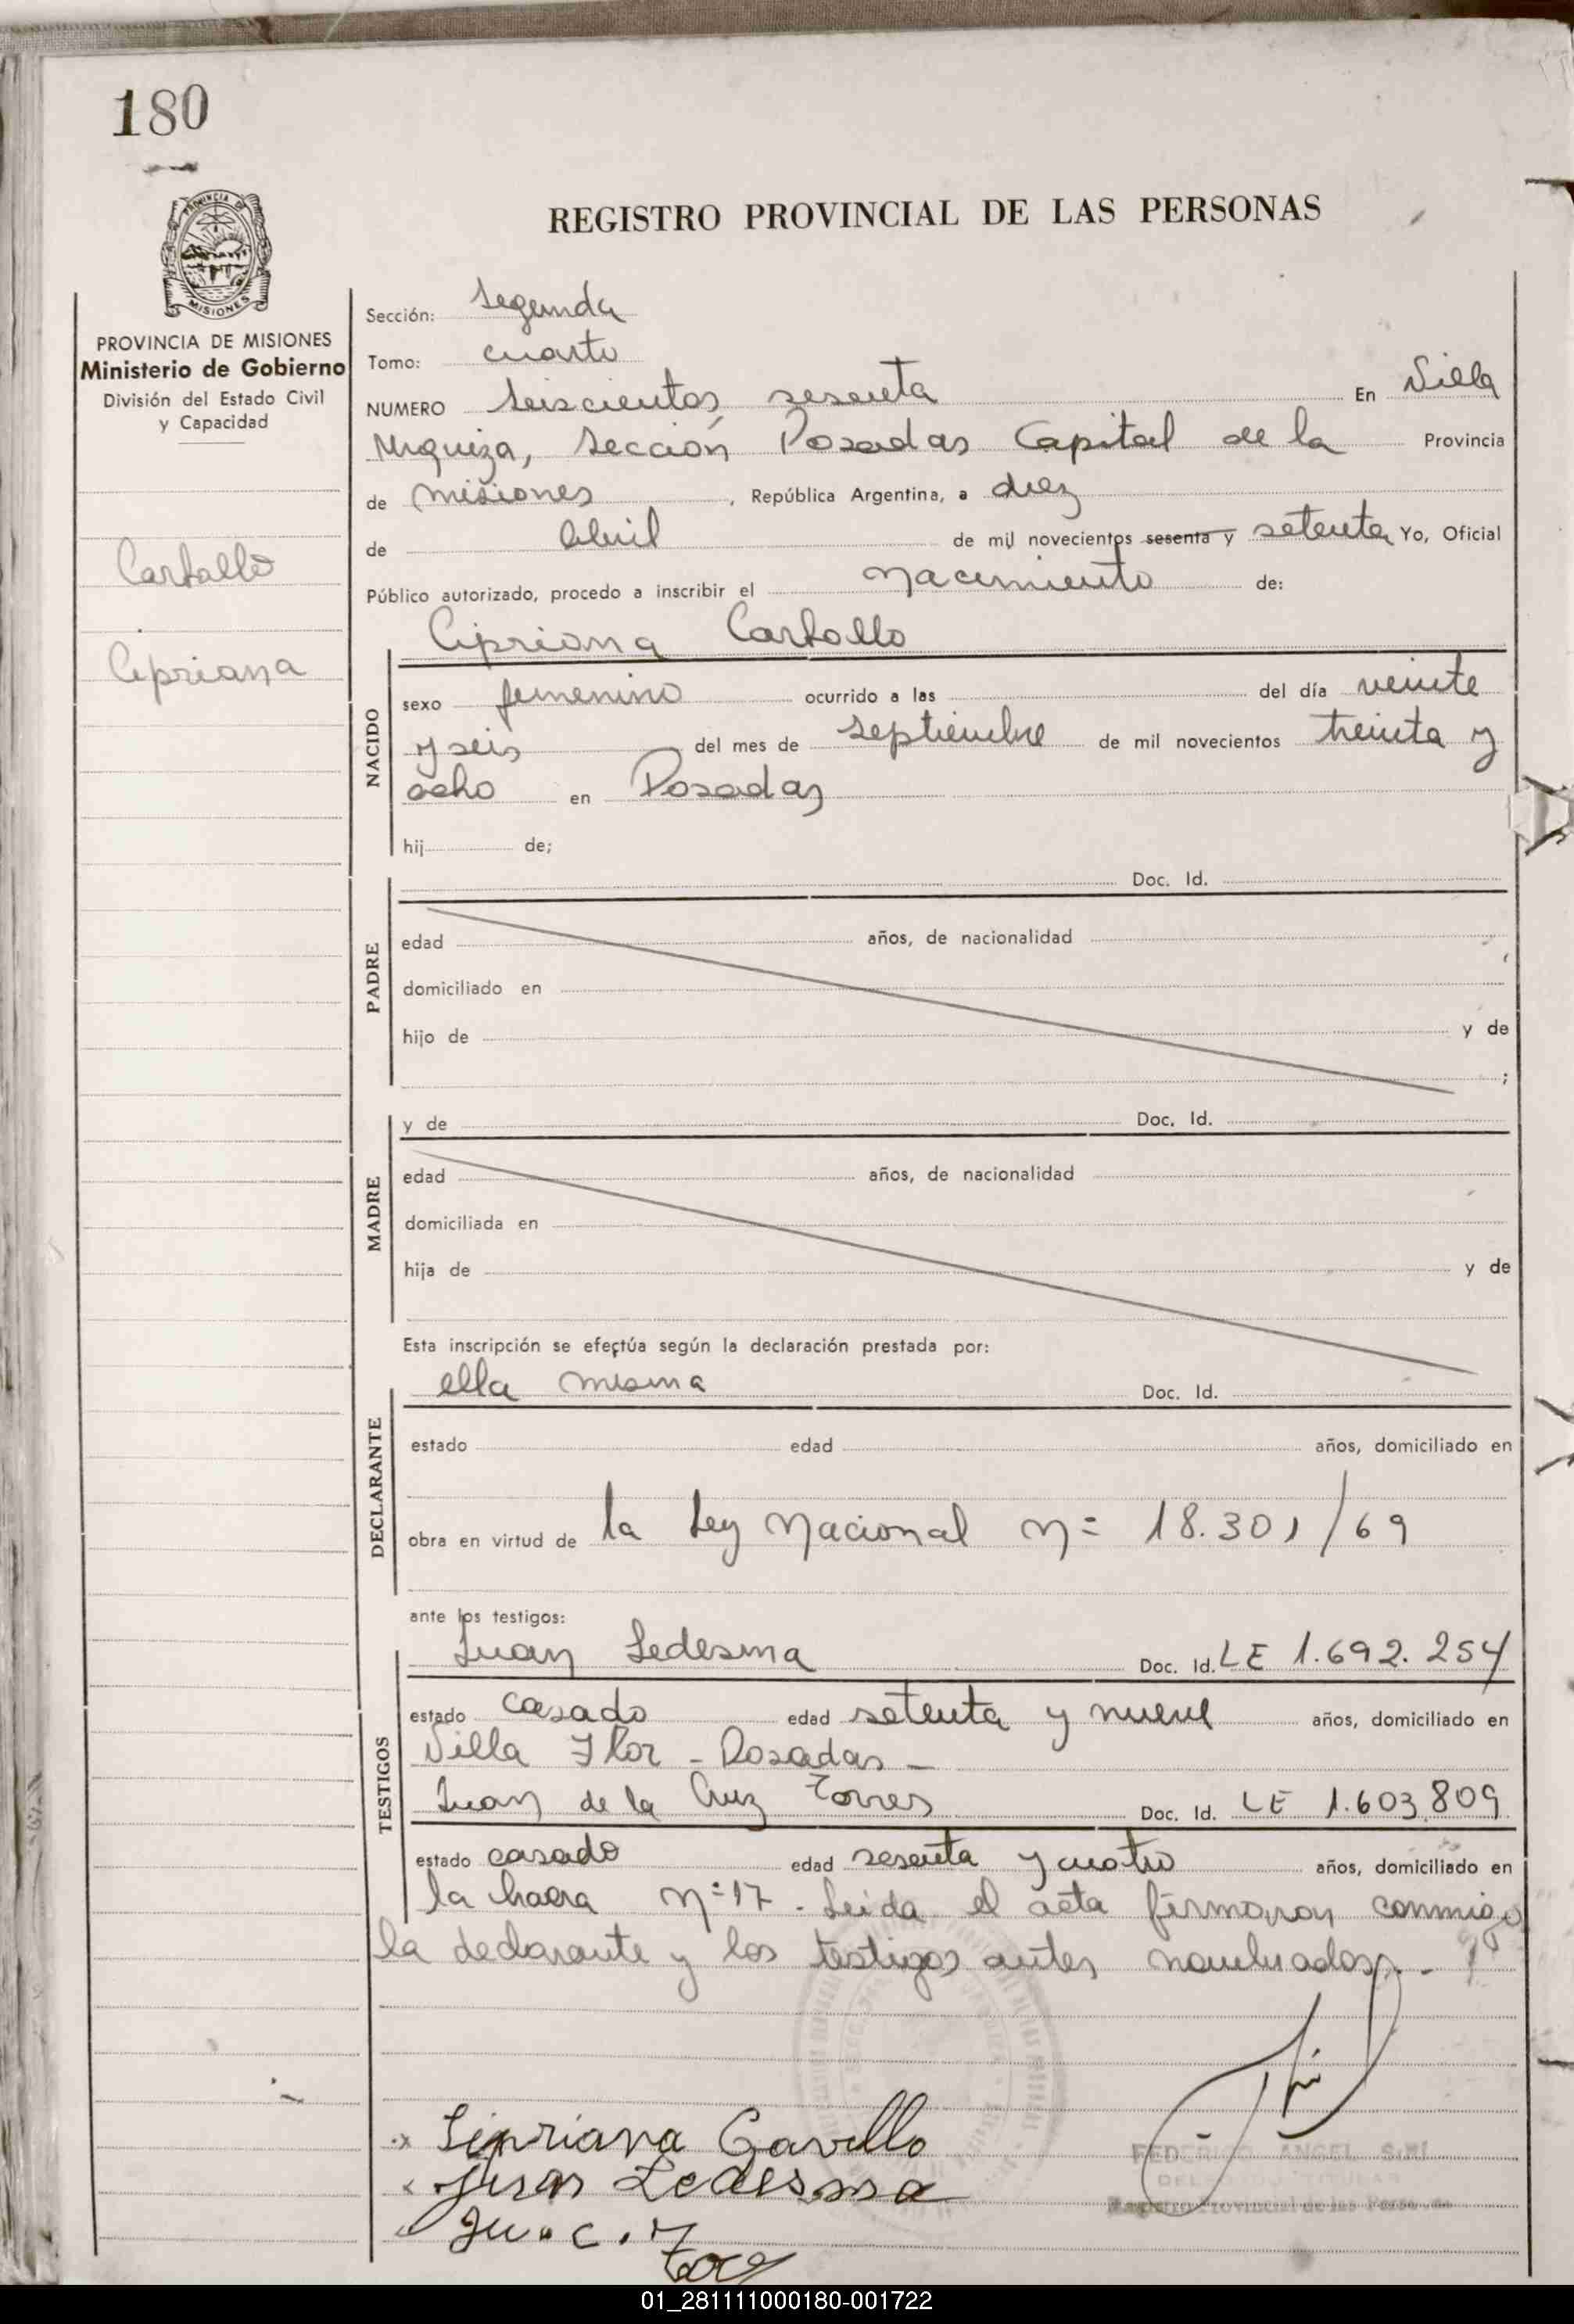 180
PROVINCIA DE
MISIONES
REGISTRO PROVINCIAL DE LAS PERSONAS
PROVINCIA DE MISIONES
Ministerio de Gobierno
División del Estado Civil
y Capacidad
Carballo
Cipriana
Sección: Segunda
Tomo: cuarto
NUMERO Seiscientos sesenta En Villa
Urquiza, Sección Posadas Capital de la Provincia
de Misiones, República Argentina, a diez
de Abril de mil novecientos sesenta y setenta Yo, Oficial
Público autorizado, procedo a inscribir el Nacimiento de:
Cipriana Carballo
NACIDO
sexo femenino ocurrido a las del día veinte
y seis del mes de septiembre de mil novecientos treinta y
ocho en Posadas
hij de;
PADRE
Doc. Id.
edad años, de nacionalidad
domiciliado en
hijo de y de
;
MADRE
y de Doc. Id.
edad años, de nacionalidad
domiciliada en
hija de y de
Esta inscripción se efectúa según la declaración prestada por:
DECLARANTE
ella misma Doc. Id.
estado edad años, domiciliado en
obra en virtud de la Ley Nacional Nº 18.301/69
ante los testigos:
TESTIGOS
Juan Ledesma Doc. Id. LE 1.692.254
estado casado edad setenta y nueve años, domiciliado en
Villa Flor - Posadas -
Juan de la Cruz Torres Doc. Id. LE 1.603.809
estado casado edad sesenta y cuatro años, domiciliado en
la hacra Nº 17. Leida el acta firmaron conmigo
la declarante y los testigos antes nombrados. -
Sipriana Gavallo
Juan Ledesma
Ju. C. 
FEDERICO ANGEL
DELEGADO TITULAR
Registro Provincial de las Personas
01_281111000180-001722